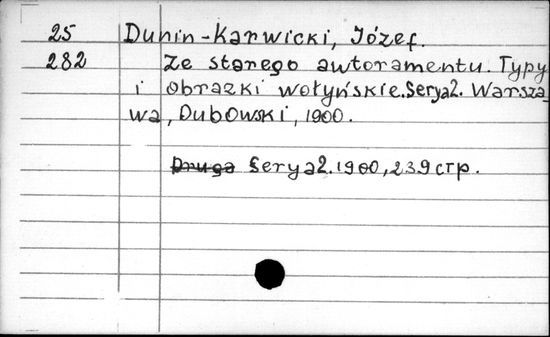 25 Dunin-Karwicki, Józef.
282 Ze starego autoramentu. Typy
i obrazki wołyńskie. Serya 2. Warsza
wa, Dubowski, 1900.
Druga Serya 2. 1900, 239 стр.